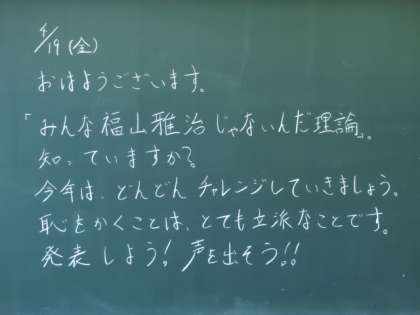 4/19(金)
おはようございます。
「みんな福山雅治じゃないんだ理論」。
知っていますか?
今年は、どんどんチャレンジしていきましょう。
恥をかくことは、とても立派なことです。
発表しよう!声を出そう!!